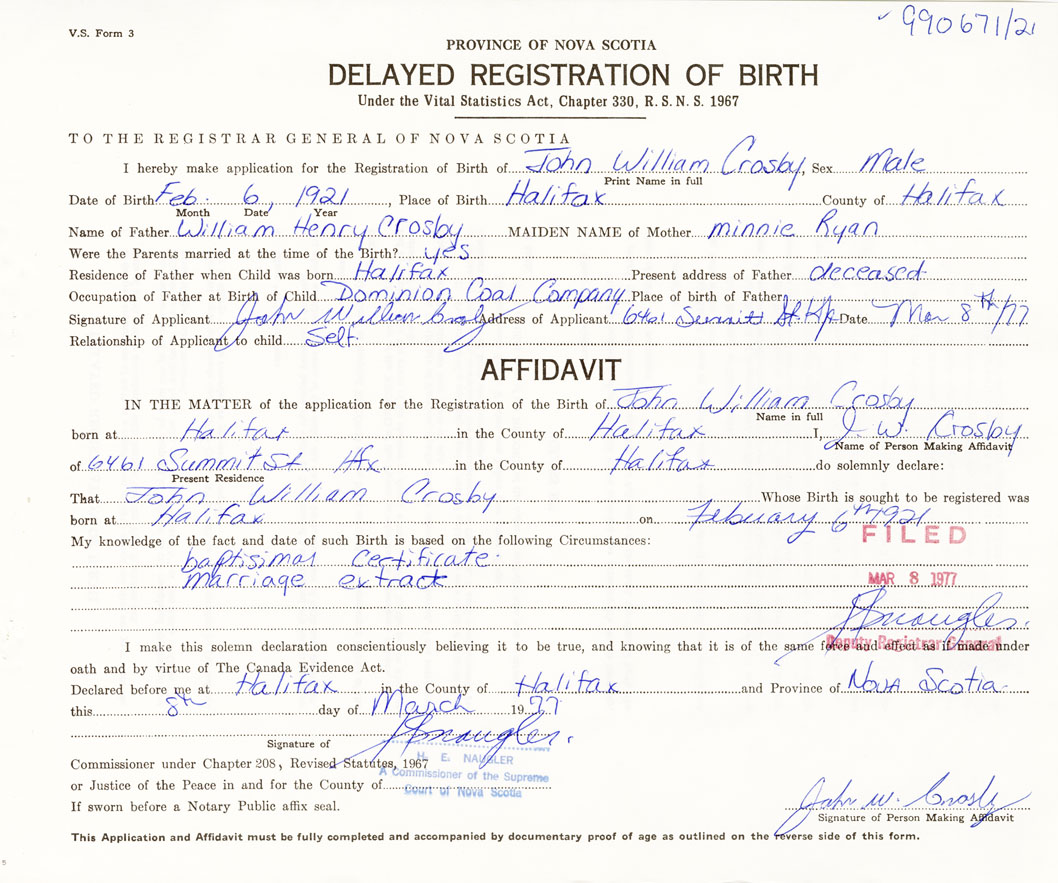 V.S. Form 3
✓ 990671/21
PROVINCE OF NOVA SCOTIA
DELAYED REGISTRATION OF BIRTH
Under the Vital Statistics Act, Chapter 330, R. S. N. S. 1967
TO THE REGISTRAR GENERAL OF NOVA SCOTIA
I hereby make application for the Registration of Birth of John William Crosby, Sex Male
Print Name in full
Date of Birth Feb. 6, 1921, Place of Birth Halifax County of Halifax
Month Date Year
Name of Father William Henry Crosby MAIDEN NAME of Mother minnie Ryan
Were the Parents married at the time of the Birth? yes
Residence of Father when Child was born Halifax Present address of Father deceased
Occupation of Father at Birth of Child Dominion Coal Company Place of birth of Father
Signature of Applicant John William Crosby Address of Applicant 6461 Summit St. Hfx Date Mar 8th/77
Relationship of Applicant to child Self
AFFIDAVIT
IN THE MATTER of the application for the Registration of the Birth of John William Crosby
Name in full
born at Halifax in the County of Halifax I, J. W. Crosby
Name of Person Making Affidavit
of 6461 Summit St Hfx in the County of Halifax do solemnly declare:
Present Residence
That John William Crosby Whose Birth is sought to be registered was
born at Halifax on Febuary 6th 1921
FILED
My knowledge of the fact and date of such Birth is based on the following Circumstances:
baptismal Certificate
marriage extract
MAR 8 1977
Deputy Registrar General
I make this solemn declaration conscientiously believing it to be true, and knowing that it is of the same force and effect as if made under
oath and by virtue of The Canada Evidence Act.
Declared before me at Halifax in the County of Halifax and Province of Nova Scotia
this 8th day of March 1977
Signature of
Commissioner under Chapter 208, Revised Statutes, 1967
H. E. NAUGLER
A Commissioner of the Supreme
Court of Nova Scotia
or Justice of the Peace in and for the County of
If sworn before a Notary Public affix seal.
John W. Crosby
Signature of Person Making Affidavit
This Application and Affidavit must be fully completed and accompanied by documentary proof of age as outlined on the reverse side of this form.